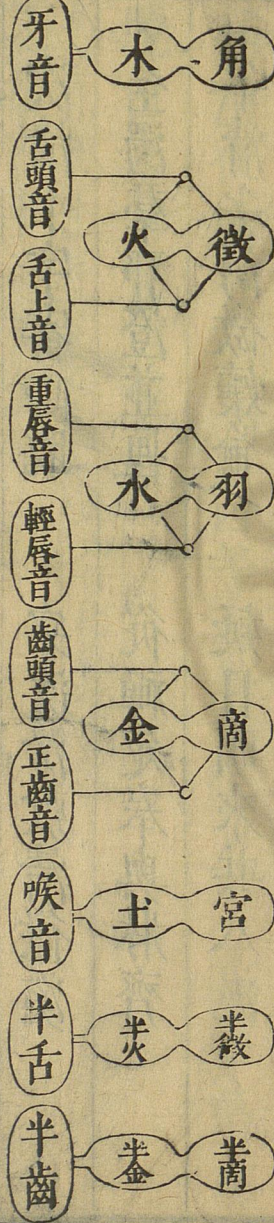 牙音 木 角
舌頭音
火 徵
舌上音
重唇音
水 羽
輕唇音
齒頭音
金 商
正齒音
喉音 土 宮
半舌 半火 半徵
半齒 半金 半商